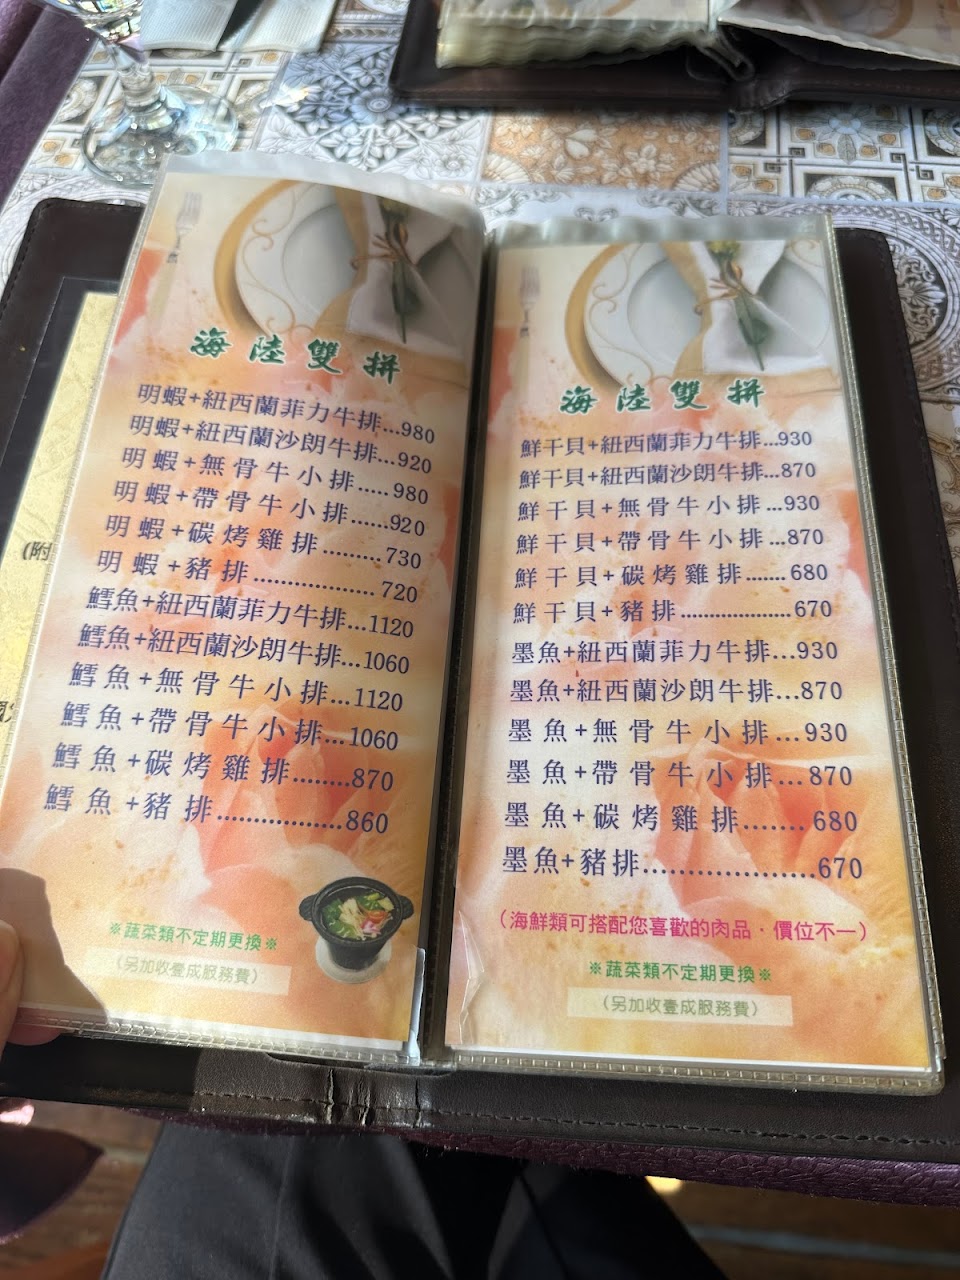 海陸雙拼
明蝦+紐西蘭菲力牛排...980
明蝦+紐西蘭沙朗牛排...920
明蝦+無骨牛小排.....980
明蝦+帶骨牛小排......920
明蝦+碳烤雞排.........730
明蝦+豬排..................720
鱈魚+紐西蘭菲力牛排...1120
鱈魚+紐西蘭沙朗牛排...1060
鱈魚+無骨牛小排...1120
鱈魚+帶骨牛小排...1060
鱈魚+碳烤雞排........870
鱈魚+豬排..................860
※蔬菜類不定期更換※
(另加收壹成服務費)
海陸雙拼
鮮干貝+紐西蘭菲力牛排...930
鮮干貝+紐西蘭沙朗牛排...870
鮮干貝+無骨牛小排...930
鮮干貝+帶骨牛小排...870
鮮干貝+碳烤雞排.......680
鮮干貝+豬排....................670
墨魚+紐西蘭菲力牛排...930
墨魚+紐西蘭沙朗牛排...870
墨魚+無骨牛小排...930
墨魚+帶骨牛小排...870
墨魚+碳烤雞排.......680
墨魚+豬排....................670
(海鮮類可搭配您喜歡的肉品．價位不一)
※蔬菜類不定期更換※
(另加收壹成服務費)
(附